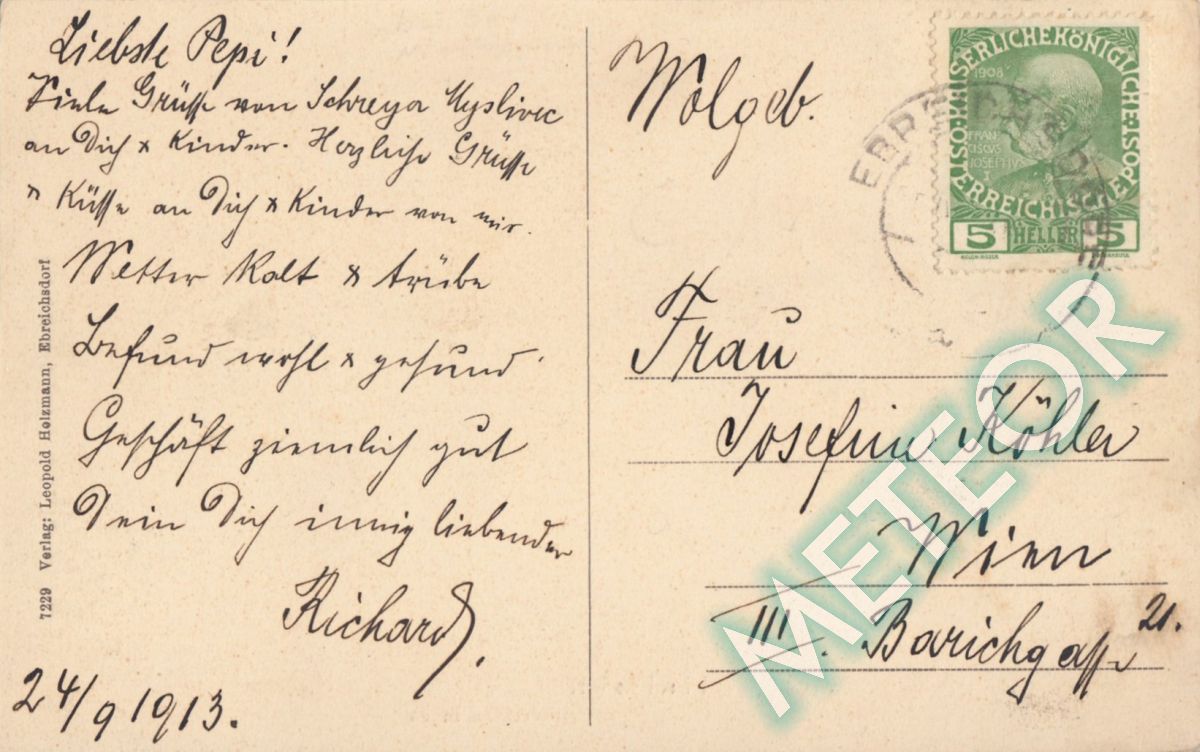 Liebste Pepi!
Viele Grüsse von Schreyer Myslivec
an Dich & Kinder. Herzliche Grüsse
& Küsse an Dich & Kinder von mir.
Wetter kalt & trübe
Befund wohl & gesund
Geschäft ziemlich gut
Dein Dich innig liebender
Richard.
24/9 1913.
7229 Verlag: Leopold Holzmann, Ebreichsdorf
Wolgeb.
Frau
Josefine Köhler
Wien
III. Barichgasse 21.
KAISERLICHEKÖNIGLICHE ÖSTERREICHISCHE POST
1908
FRAN
CISCVS
IOSEPHVS
I
5 HELLER 5
EBREICHSDORF
METEOR